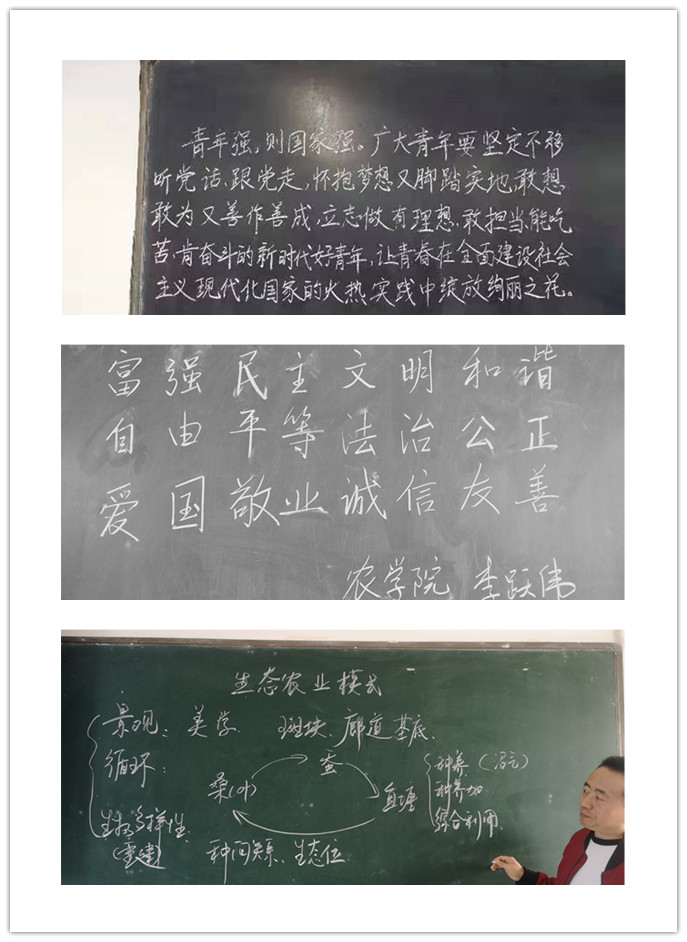 青年强,则国家强。广大青年要坚定不移
听党话、跟党走,怀抱梦想又脚踏实地,敢想
敢为又善作善成,立志做有理想、敢担当、能吃
苦、肯奋斗的新时代好青年,让青春在全面建设社会
主义现代化国家的火热实践中绽放绚丽之花。
富强民主文明和谐
自由平等法治公正
爱国敬业诚信友善
农学院 李跃伟
生态农业模式
景观:美学 斑块、廊道基底.
循环:
蚕
桑(叶)
鱼塘
种养
种养加
综合利用
生物多样性
(重建)
种间关系、生态位